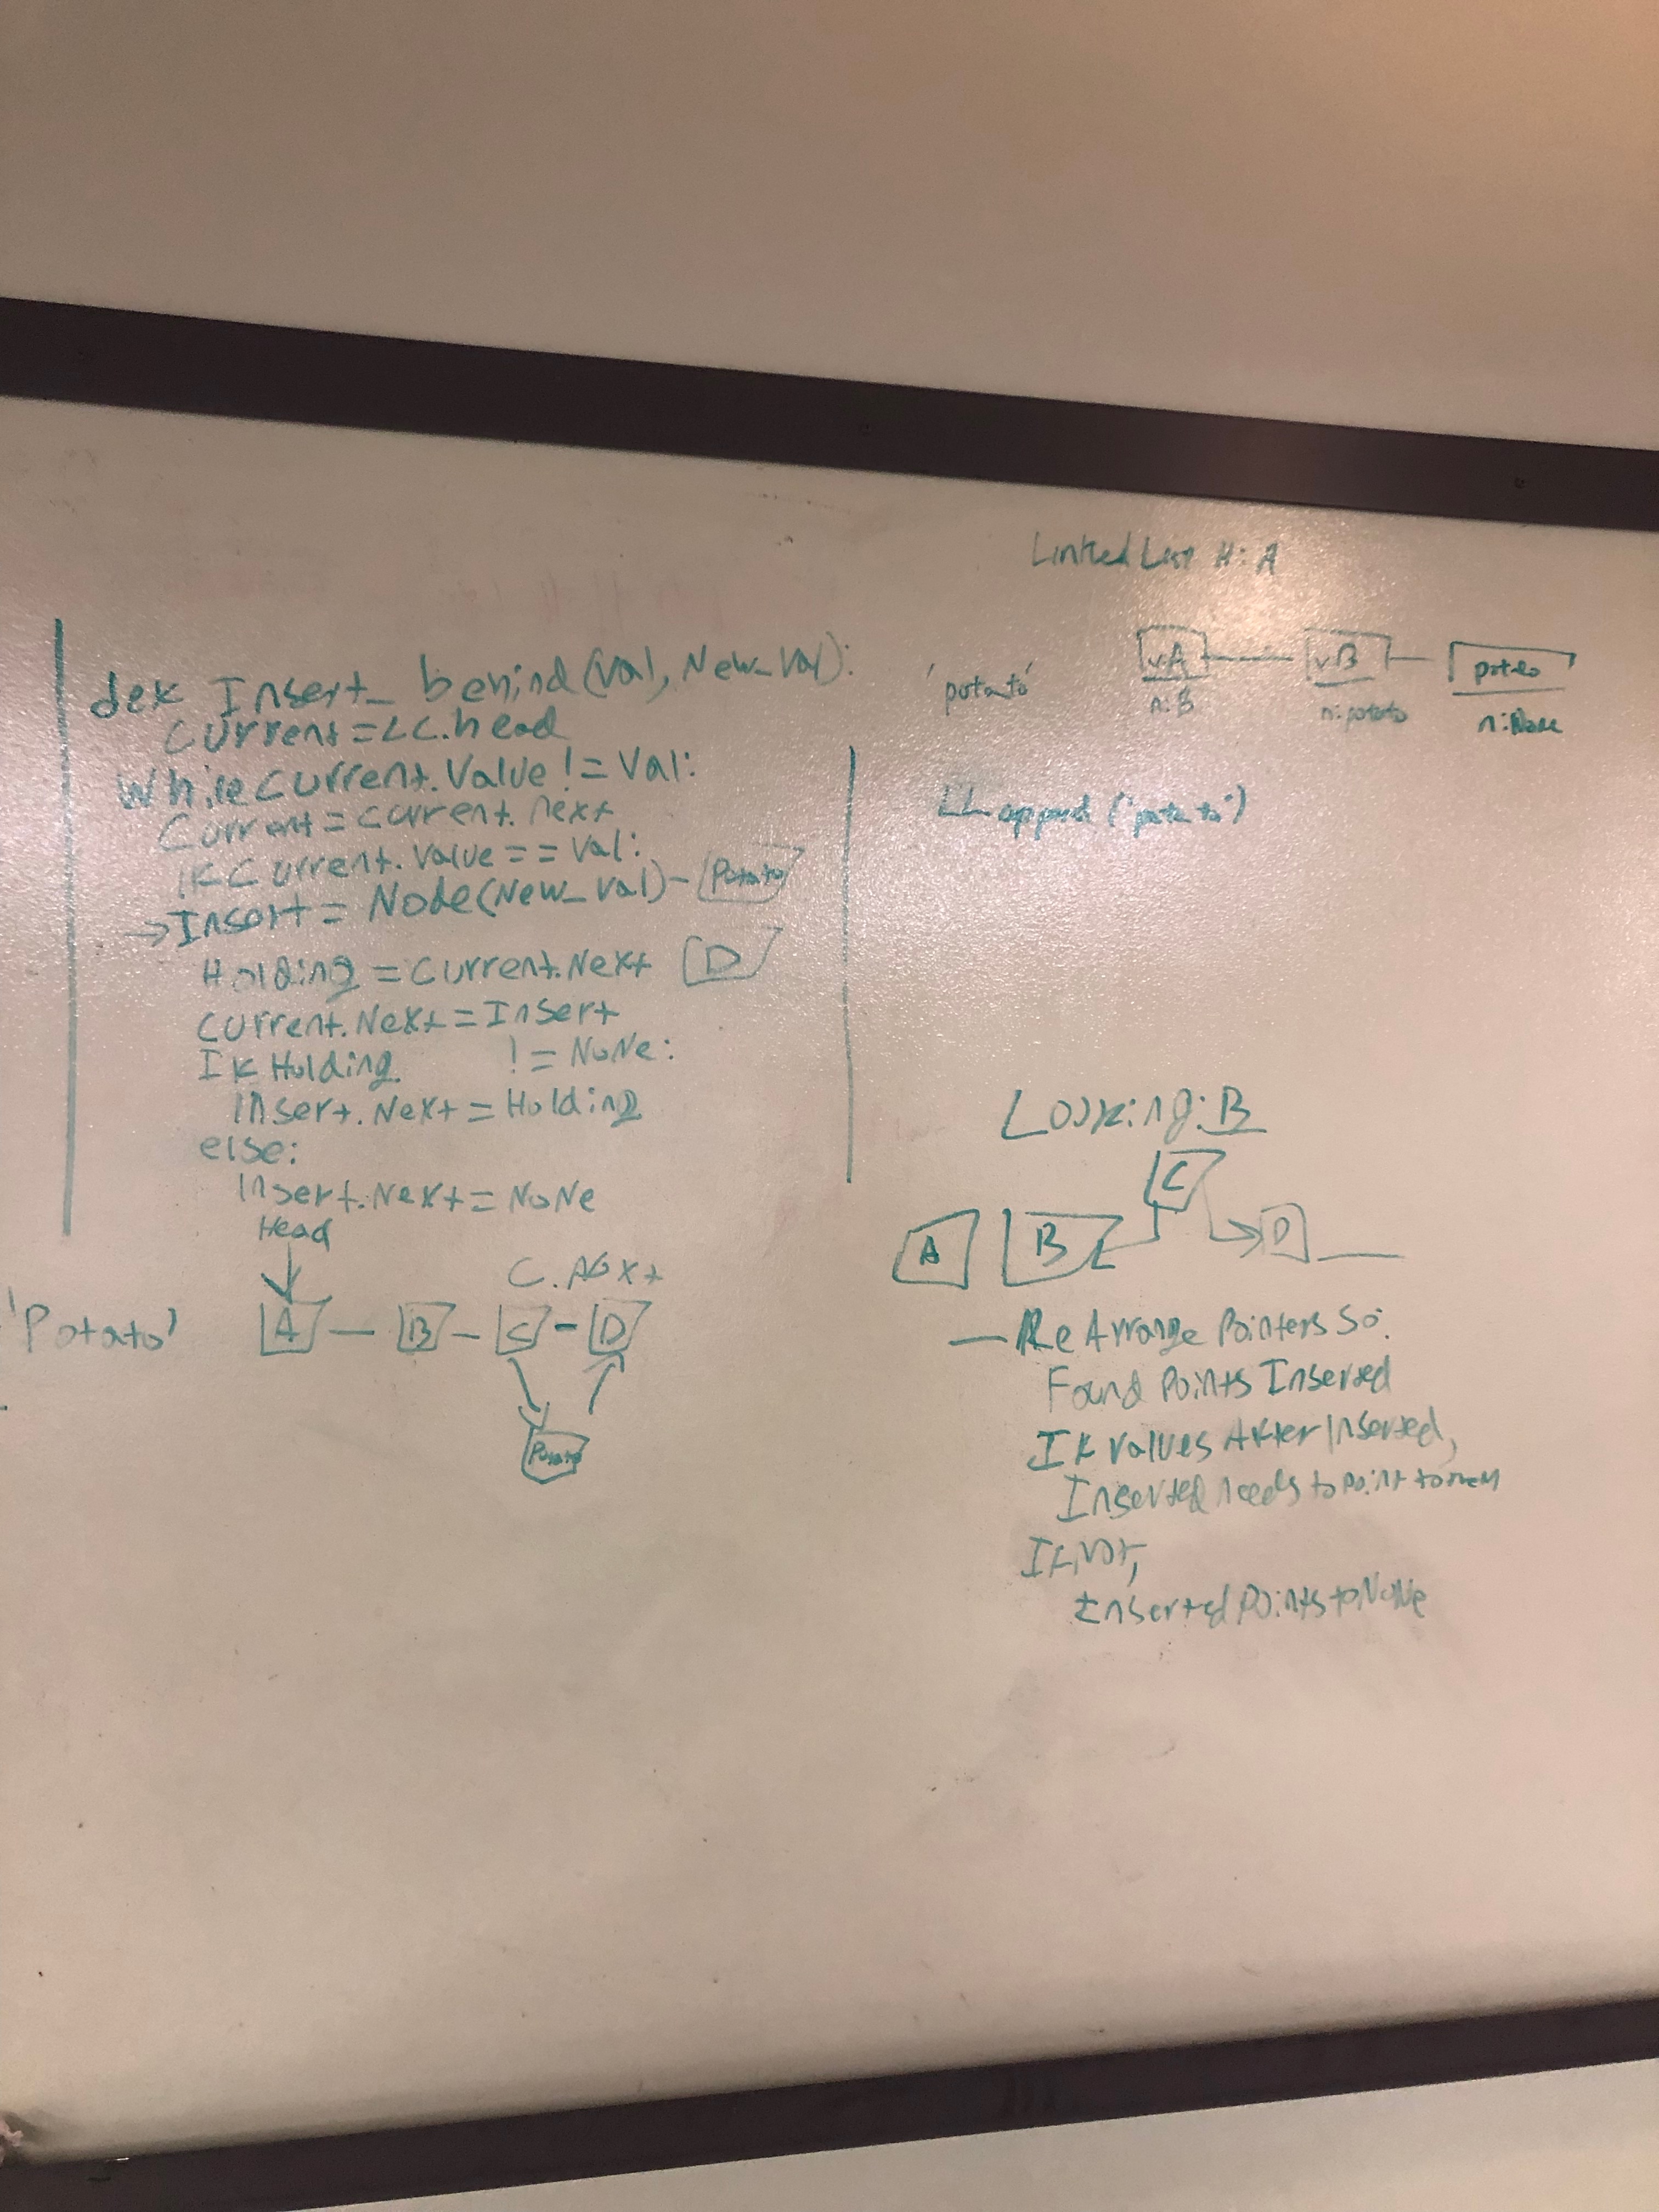 def Insert_behind(Val, New_Val):
Current=LL.head
While current.Value != Val:
Current=current.next
If Current.Value == Val:
→Insert = Node(New_Val) - Potato
Holding = Current.Next D
Current.Next = Insert
If Holding != NoNe:
Insert.Next = Holding
else:
Insert.Next = NoNe
Head
C.next
'Potato' A — B — C - D
Potato
Linked List H: A
'potato' v:A v:B potato
n:B n:potato n:None
LL append ('potato')
Looking: B
C
A B D
— ReArrange Pointers So:
Found Points Inserted
If Values After Inserted,
Inserted needs to point to them
If Not,
Inserted Points to NoNe